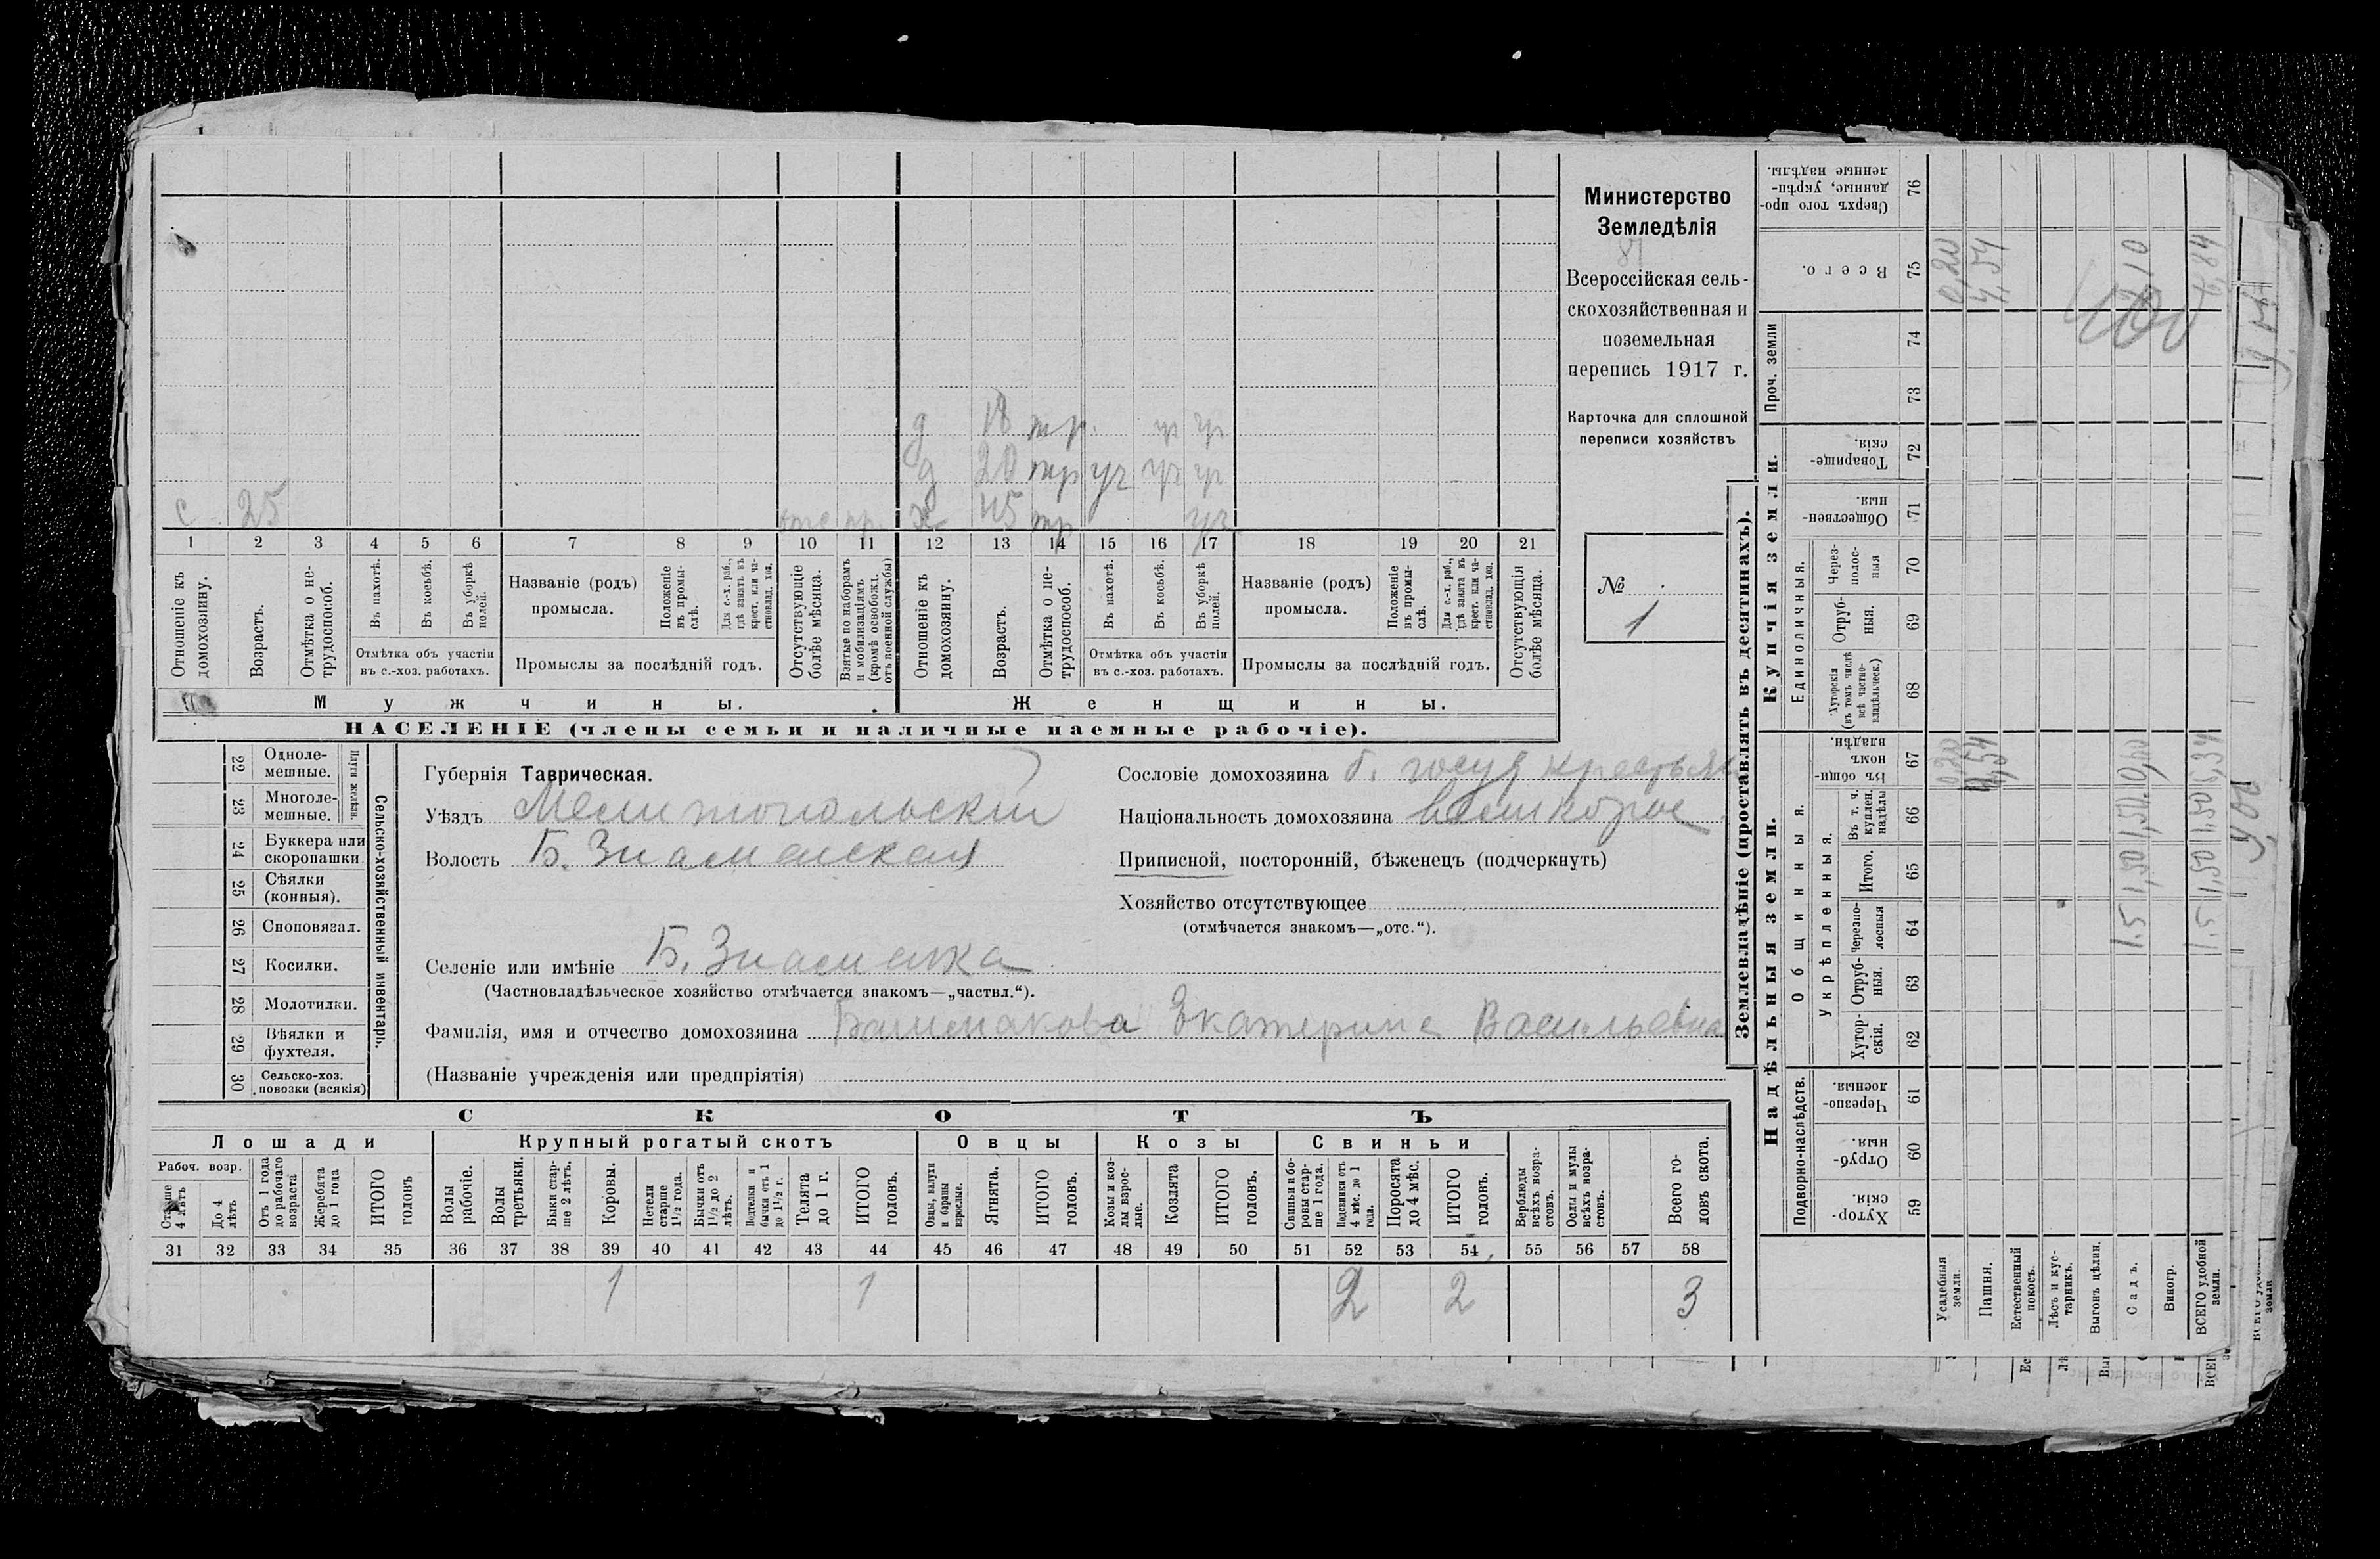 д 18 тр. ур ур
д 20 тр ур ур ур
с 25 отс пр. х 45 тр ур
1 2 3 4 5 6 7 8 9 10 11 12 13 14 15 16 17 18 19 20 21
Отношеніе къ домохозяину.
Возрастъ.
Отмѣтка о нетрудоспособ.
Въ пахотѣ.
Въ косьбѣ.
Въ уборкѣ полей.
Отмѣтка объ участіи въ с.-хоз. работахъ.
Названіе (родъ) промысла.
Положеніе въ промыслѣ.
Для с.-х. раб., гдѣ занятъ въ крест. или частновлад. хоз.
Промыслы за послѣдній годъ.
Отсутствующіе болѣе мѣсяца.
Взятые по наборамъ и мобилизаціямъ (кромѣ освобожд. отъ военной службы)
Отношеніе къ домохозяину.
Возрастъ.
Отмѣтка о нетрудоспособ.
Въ пахотѣ.
Въ косьбѣ.
Въ уборкѣ полей.
Отмѣтка объ участіи въ с.-хоз. работахъ.
Названіе (родъ) промысла.
Положеніе въ промыслѣ.
Для с.-х. раб., гдѣ занята въ крест. или частновлад. хоз.
Промыслы за послѣдній годъ.
Отсутствующія болѣе мѣсяца.
Мужчины.
Женщины.
НАСЕЛЕНІЕ (члены семьи и наличные наемные рабочіе).
Министерство
Земледѣлія
81
Всероссійская сель-
скохозяйственная и
поземельная
перепись 1917 г.
Карточка для сплошной
переписи хозяйствъ
№
1
22 Одноле-
мешные.
23 Многоле-
мешные.
Плуги желѣзн.
24 Буккера или
скоропашки
25 Сѣялки
(конныя).
26 Сноповязал.
27 Косилки.
28 Молотилки.
29 Вѣялки и
фухтеля.
30 Сельско-хоз.
повозки (всякія)
Сельско-хозяйственный инвентарь.
Губернія Таврическая.
Уѣздъ Мелитопольскій
Волость Б. Знаменская
Сословіе домохозяина б. госуд крестьян
Національность домохозяина великорос
Приписной, посторонній, бѣженецъ (подчеркнуть)
Хозяйство отсутствующее
(отмѣчается знакомъ—„отс.“).
Селеніе или имѣніе Б. Знаменка
(Частновладѣльческое хозяйство отмѣчается знакомъ—„частвл.“).
Фамилія, имя и отчество домохозяина Башмакова Екатерина Васильевна
(Названіе учрежденія или предпріятія)
СКОТЪ
Лошади
Крупный рогатый скотъ
Овцы
Козы
Свиньи
Рабоч. возр.
Старше 4 лѣтъ
До 4 лѣтъ
Отъ 1 года до рабочаго возраста
Жеребята до 1 года
ИТОГО головъ
Волы рабочіе.
Волы третьяки.
Быки старше 2 лѣтъ.
Коровы.
Нетели старше 1½ года.
Бычки отъ 1½ до 2 лѣтъ.
Подтелки и бычки отъ 1 до 1½ г.
Телята до 1 г.
ИТОГО головъ.
Овцы, валухи и бараны взрослые.
Ягнята.
ИТОГО головъ.
Козы и козлы взрослые.
Козлята
ИТОГО головъ.
Свиньи и боровы старше 1 года.
Подсвинки отъ 4 мѣс. до 1 года.
Поросята до 4 мѣс.
ИТОГО головъ.
Верблюды всѣхъ возрастовъ.
Ослы и мулы всѣхъ возрастовъ.
Всего головъ скота.
31 32 33 34 35 36 37 38 39 40 41 42 43 44 45 46 47 48 49 50 51 52 53 54 55 56 57 58
1 1 2 2 3
Землевладѣніе (проставлять въ десятинахъ).
Надѣльныя земли.
Купчія земли.
Проч. земли
Сверхъ того проданные, укрѣпленные надѣлы. 76
Всего. 75
74
73
Товарищескія. 72
Общественныя. 71
Единоличныя.
Черезполосныя 70
Отрубныя. 69
Хуторскія (въ томъ числѣ всѣ частновладѣльческ.) 68
Общинныя.
Въ общинномъ владѣн. 67
Укрѣпленныя.
Въ т. ч. куплен. надѣлы 66
Итого. 65
Черезполосныя 64
Отрубныя. 63
Хуторскія. 62
Подворно-наслѣдств.
Черезполосныя. 61
Отрубныя. 60
Хуторскія. 59
Усадебныя земли.
Пашня.
Естественный покосъ.
Лѣсъ и кустарникъ.
Выгонъ цѣлин.
Садъ.
Виногр.
ВСЕГО удобной земли.
0,20 0,20
4,54 4,54
1.5 1,50 1,50 0,60 2,10
1.5 1,50 1,50 5,34 6,84
400